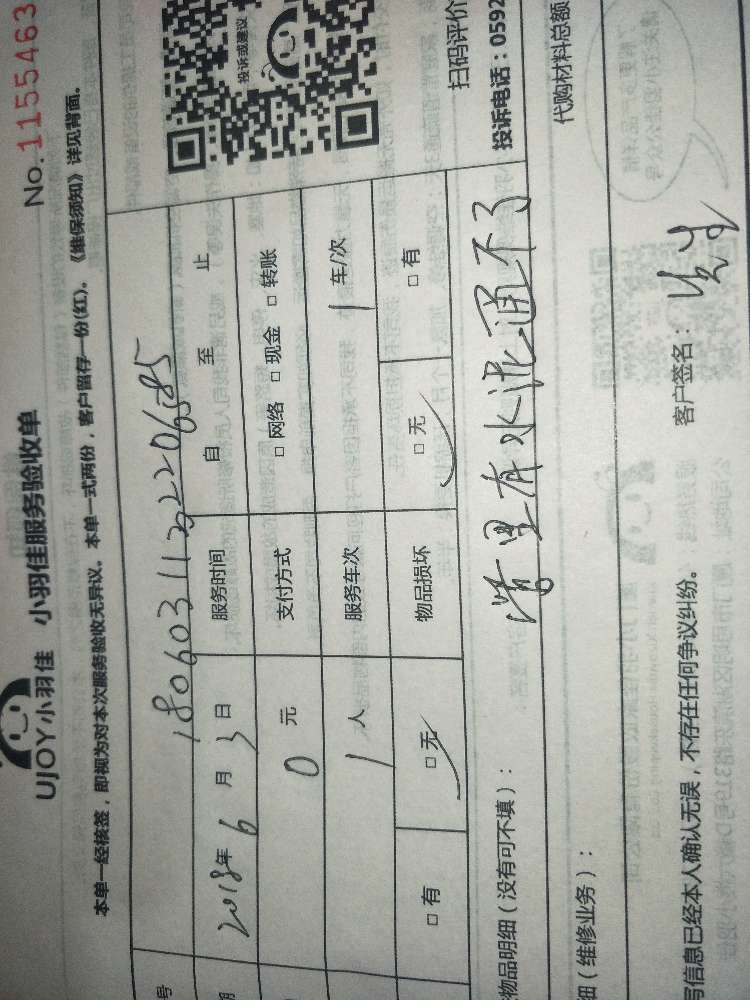 No.1155463
UJOY小羽佳 小羽佳服务验收单
本单一经核签，即视为对本次服务验收无异议。本单一式两份，客户留存一份(红)。《维保须知》详见背面。
投诉或建议
号
期 2018年 6 月 3 日 服务时间 自 至 止
0 元 支付方式 □ 网络 □ 现金 □ 转账
1 人 服务车次 1 车/次
□ 有 □ 无 物品损坏 □ 无 □ 有
扫码评价
投诉电话：0592
物品明细（没有可不填）：
里有水泥通不了
代购材料总额
细（维修业务）：
写信息已经本人确认无误，不存在任何争议纠纷。 客户签名：